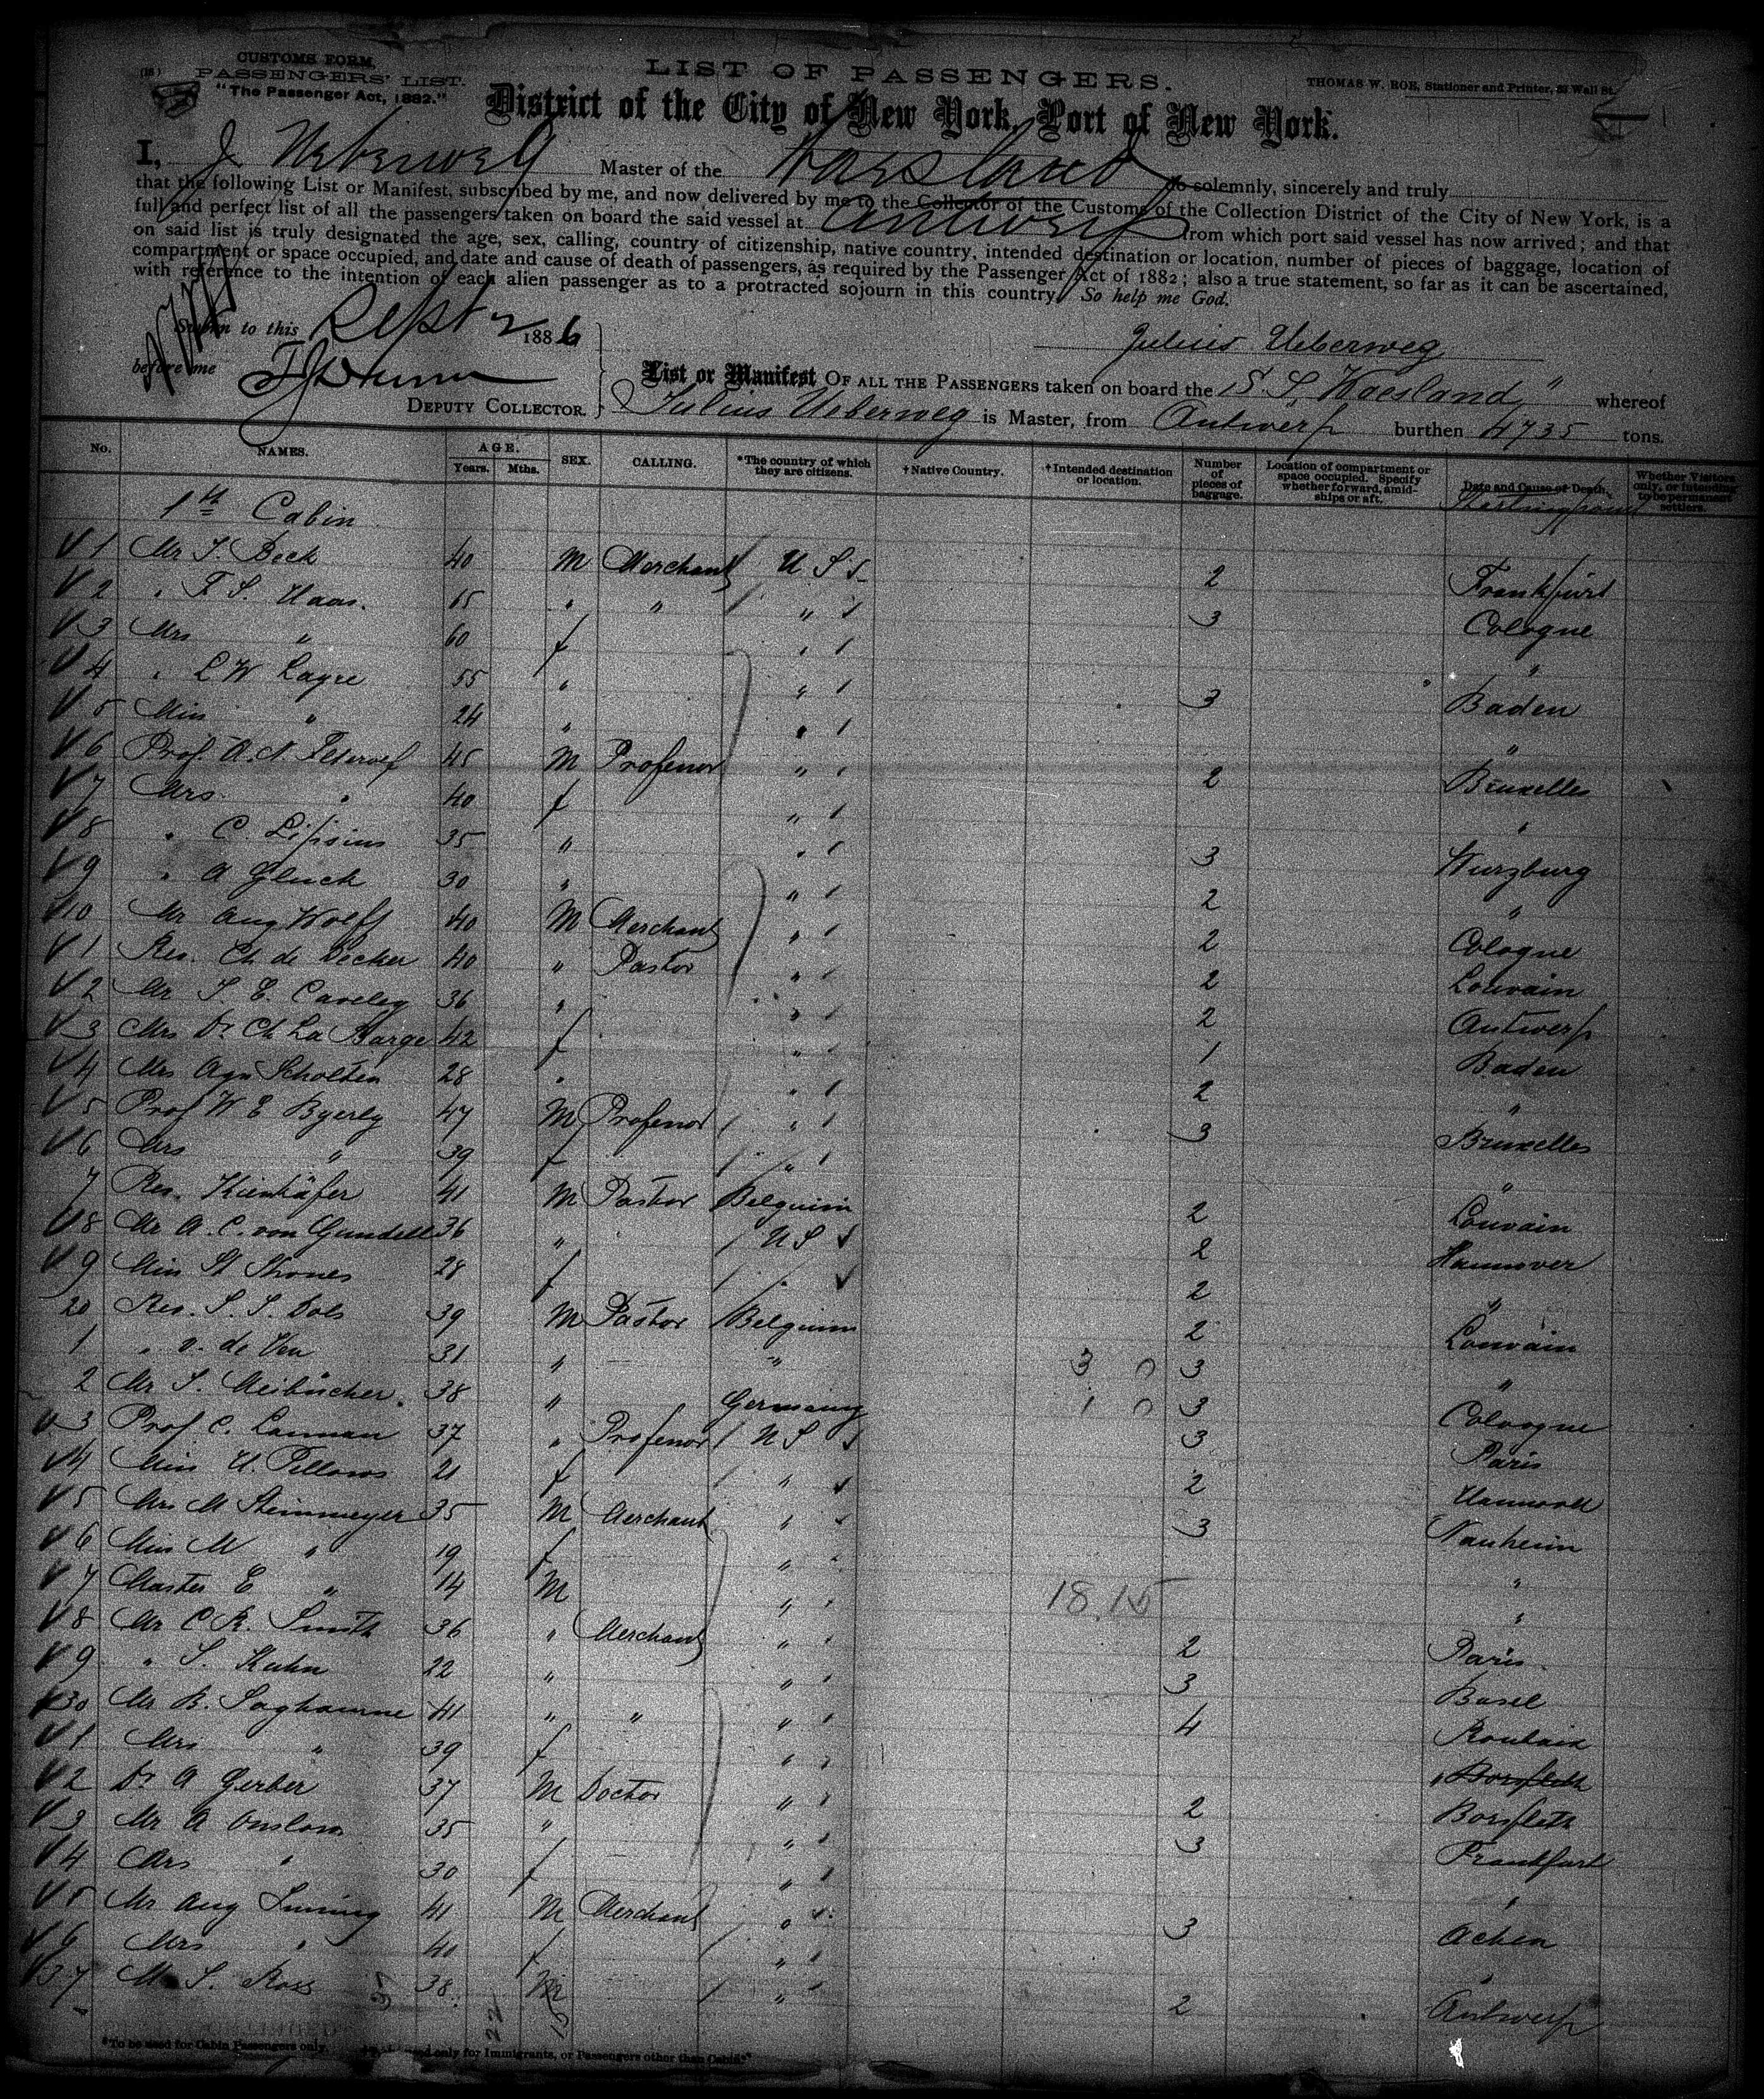 CUSTOMS FORM.
PASSENGERS' LIST.
"The Passenger Act, 1882."
LIST OF PASSENGERS.
THOMAS W. ROE, Stationer and Printer, Wall St.
District of the City of New York, Port of New York.
I, J Ueberweg Master of the Waesland do solemnly, sincerely and truly
that the following List or Manifest, subscribed by me, and now delivered by me to the Collector of the Customs of the Collection District of the City of New York, is a
full and perfect list of all the passengers taken on board the said vessel at Antwerp from which port said vessel has now arrived; and that
on said list is truly designated the age, sex, calling, country of citizenship, native country, intended destination or location, number of pieces of baggage, location of
compartment or space occupied, and date and cause of death of passengers, as required by the Passenger Act of 1882; also a true statement, so far as it can be ascertained,
with reference to the intention of each alien passenger as to a protracted sojourn in this country. So help me God.
Sworn to this Sept 2 1886
Julius Ueberweg
before me
DEPUTY COLLECTOR.
List or Manifest OF ALL THE PASSENGERS taken on board the S. S. Waesland" whereof
Julius Ueberweg is Master, from Antwerp burthen 4735 tons.
No. NAMES. AGE. Years. Mths. SEX. CALLING. *The country of which they are citizens. †Native Country. †Intended destination or location. Number of pieces of baggage. Location of compartment or space occupied. Specify whether forward, amidships or aft. Date and Cause of Death. Whether Visitors only, or intending to be permanent settlers.
1st Cabin
1 Mr Beck 40 M Merchant U.S. 2 Frankfurt
2 " Haas. 65 " " " 3 Cologne
3 Mrs " 60 f " "
4 " L W Layre 55 " " 3 Baden
5 Miss " 24 " " "
6 Prof. A. 45 M Professor " 2 Bruxelles
7 Mrs. " 40 f " "
8 " C. Lipsius 35 " " 3 Wurzburg
9 " A Gluck 30 " " 2 "
10 Mr Aug Wolff 40 M Merchant " 2 Cologne
1 Rev. Ch de Decker 40 " Pastor " 2 Louvain
2 Mr 36 " " 2 Antwerp
3 Mrs Dr Ch La Barge 42 f " 1 Baden
4 Mrs Agn Scholten 28 " " 2 "
5 Prof W E Byerly 47 M Professor " 3 Bruxelles
6 Mrs " 39 f " "
7 Rev. Kienhäfer 41 M Pastor Belguim 2 Louvain
8 Mr A. C. von Gundell 36 " U S 2 Hannover
9 Miss 28 f " 2 "
20 Rev. Dols 39 M Pastor Belguim 2 Louvain
1 " v. de Ven 31 " " 3 0 3 "
2 Mr Meibücher. 38 " Germany 1 0 3 Cologne
3 Prof C. Lanman 37 " Professor U S 3 Paris
4 Miss 21 f " 2 Hannover
5 Mrs M Steinmeyer 35 M Merchant " 3 Nauheim
6 Miss M " 19 f " "
7 Master E " 14 M " 18.15 "
8 Mr C R. Smith 36 " Merchant " 2 Paris
9 " S. Kuhn 22 " " 3 Basel
30 Mr B. 41 " " " 4 Roubaix
1 Mrs " 39 f " "
2 Dr A Gerber 37 M Doctor " 2 Borsfleth
3 Mr A Onslow 35 " " 3 Frankfurt
4 Mrs " 30 f " "
5 Mr Aug 41 M Merchant " 3 Achen
6 Mrs " 40 f " "
37 M S. Ross 38 M " 2 Antwerp
*To be used for Cabin Passengers only. only for Immigrants, or Passengers other than Cabin.